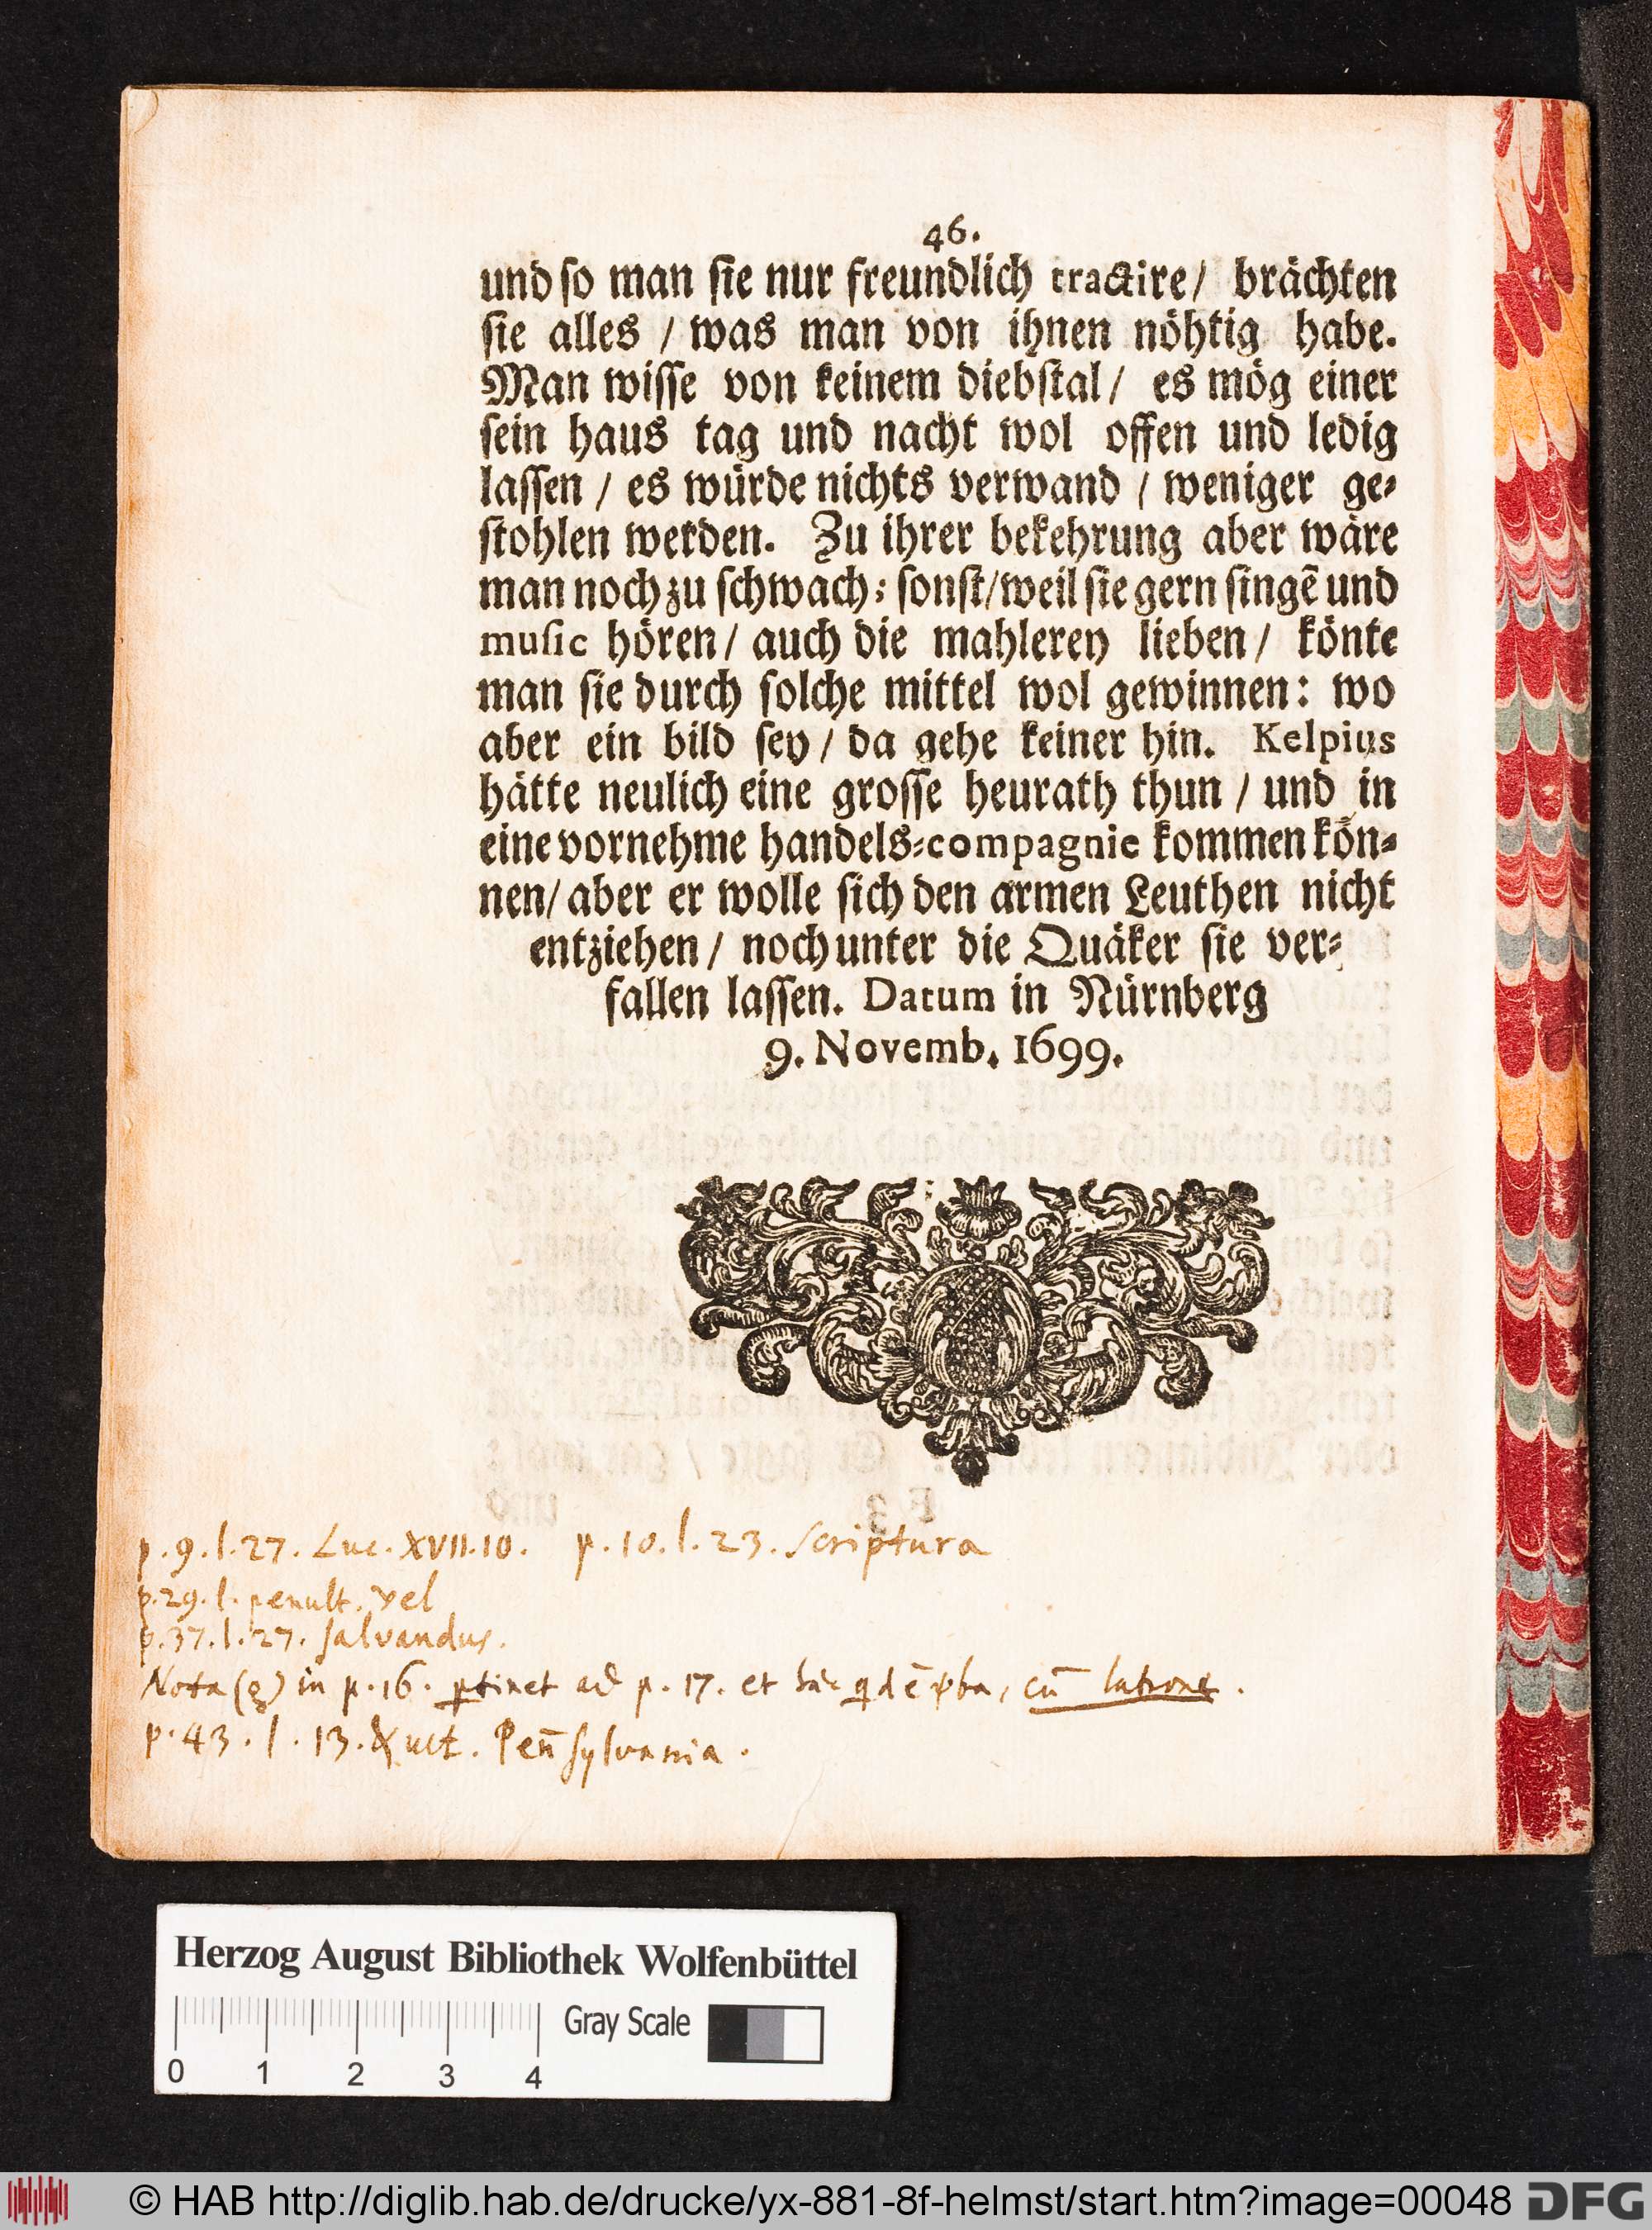 46.
und ſo man ſie nur freundlich tractire / brächten
ſie alles / was man von ihnen nöhtig habe.
Man wiſſe von keinem diebſtal / es mög einer
ſein haus tag und nacht wol offen und ledig
laſſen / es würde nichts verwand / weniger ge-
ſtohlen werden. Zu ihrer bekehrung aber wäre
man noch zu ſchwach; ſonſt/weil ſie gern ſingẽ und
muſic hören / auch die mahlerey lieben / könte
man ſie durch ſolche mittel wol gewinnen: wo
aber ein bild ſey / da gehe keiner hin. Kelpius
hätte neulich eine groſſe heurath thun / und in
eine vornehme handels-compagnie kommen kön-
nen / aber er wolle ſich den armen Leuthen nicht
entziehen / noch unter die Quäker ſie ver-
fallen laſſen. Datum in Nürnberg
9. Novemb. 1699.
p. 9. l. 27. Luc. XVII. 10. p. 10. l. 23. Scriptura
p. 29. l. penult. vel
p. 37. l. 27. ſalvandus.
Nota (g) in p. 16. ptinet ad p. 17. et cū latrone.
p. 43. l. 13. & ult. Peñſylvania.
Herzog August Bibliothek Wolfenbüttel
Gray Scale
0 1 2 3 4
© HAB http://diglib.hab.de/drucke/yx-881-8f-helmst/start.htm?image=00048 DFG